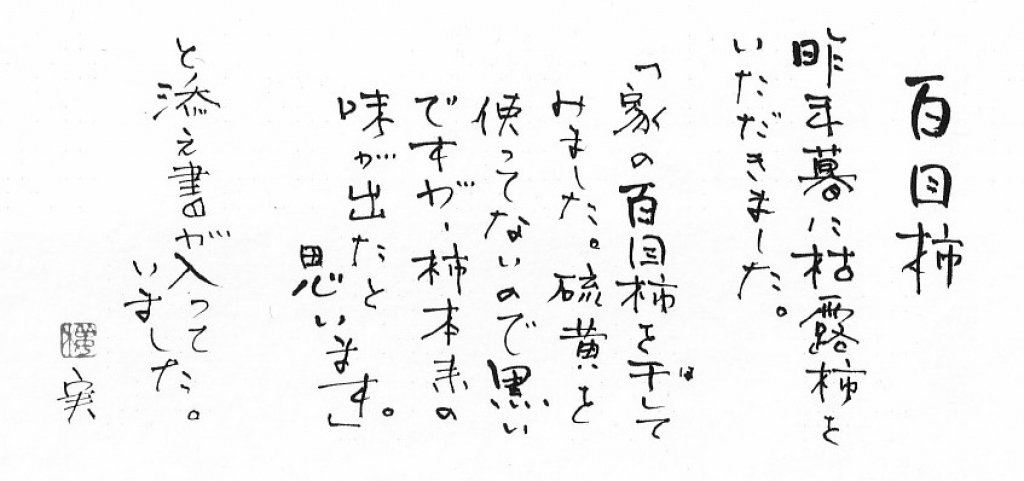 百目柿
昨年暮に枯露柿を
いただきました。
「家の百目柿を干して
ほ
みました。硫黄を
使ってないので黒い
ですが、柿本来の
味が出たと
思います。」
と添え書が入って
いました。
実